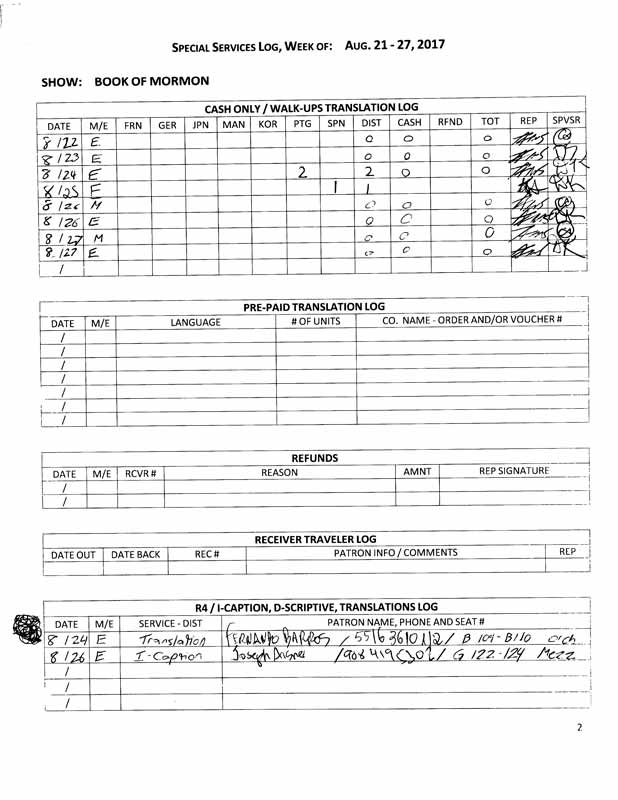 SPECIAL SERVICES LOG, WEEK OF: AUG. 21 - 27, 2017
SHOW: BOOK OF MORMON
CASH ONLY / WALK-UPS TRANSLATION LOG
DATE M/E FRN GER JPN MAN KOR PTG SPN DIST CASH RFND TOT REP SPVSR
8 / 22 E 0 0 0
8 / 23 E 0 0 0
8 / 24 E 2 2 0 0
8 / 25 E 1 1
8 / 26 M 0 0 0
8 / 26 E 0 0 0
8 / 27 M 0 0 0
8 / 27 E 0 0 0
/
PRE-PAID TRANSLATION LOG
DATE M/E LANGUAGE # OF UNITS CO. NAME - ORDER AND/OR VOUCHER #
/
/
/
/
/
/
/
REFUNDS
DATE M/E RCVR # REASON AMNT REP SIGNATURE
/
/
RECEIVER TRAVELER LOG
DATE OUT DATE BACK REC # PATRON INFO / COMMENTS REP
R4 / I-CAPTION, D-SCRIPTIVE, TRANSLATIONS LOG
DATE M/E SERVICE - DIST PATRON NAME, PHONE AND SEAT #
8 / 24 E Translation FERNANDO BARROS / B 109 - B110 orch
8 / 26 E I-Caption Joseph / G 122-124 Mezz
/
/
/
2